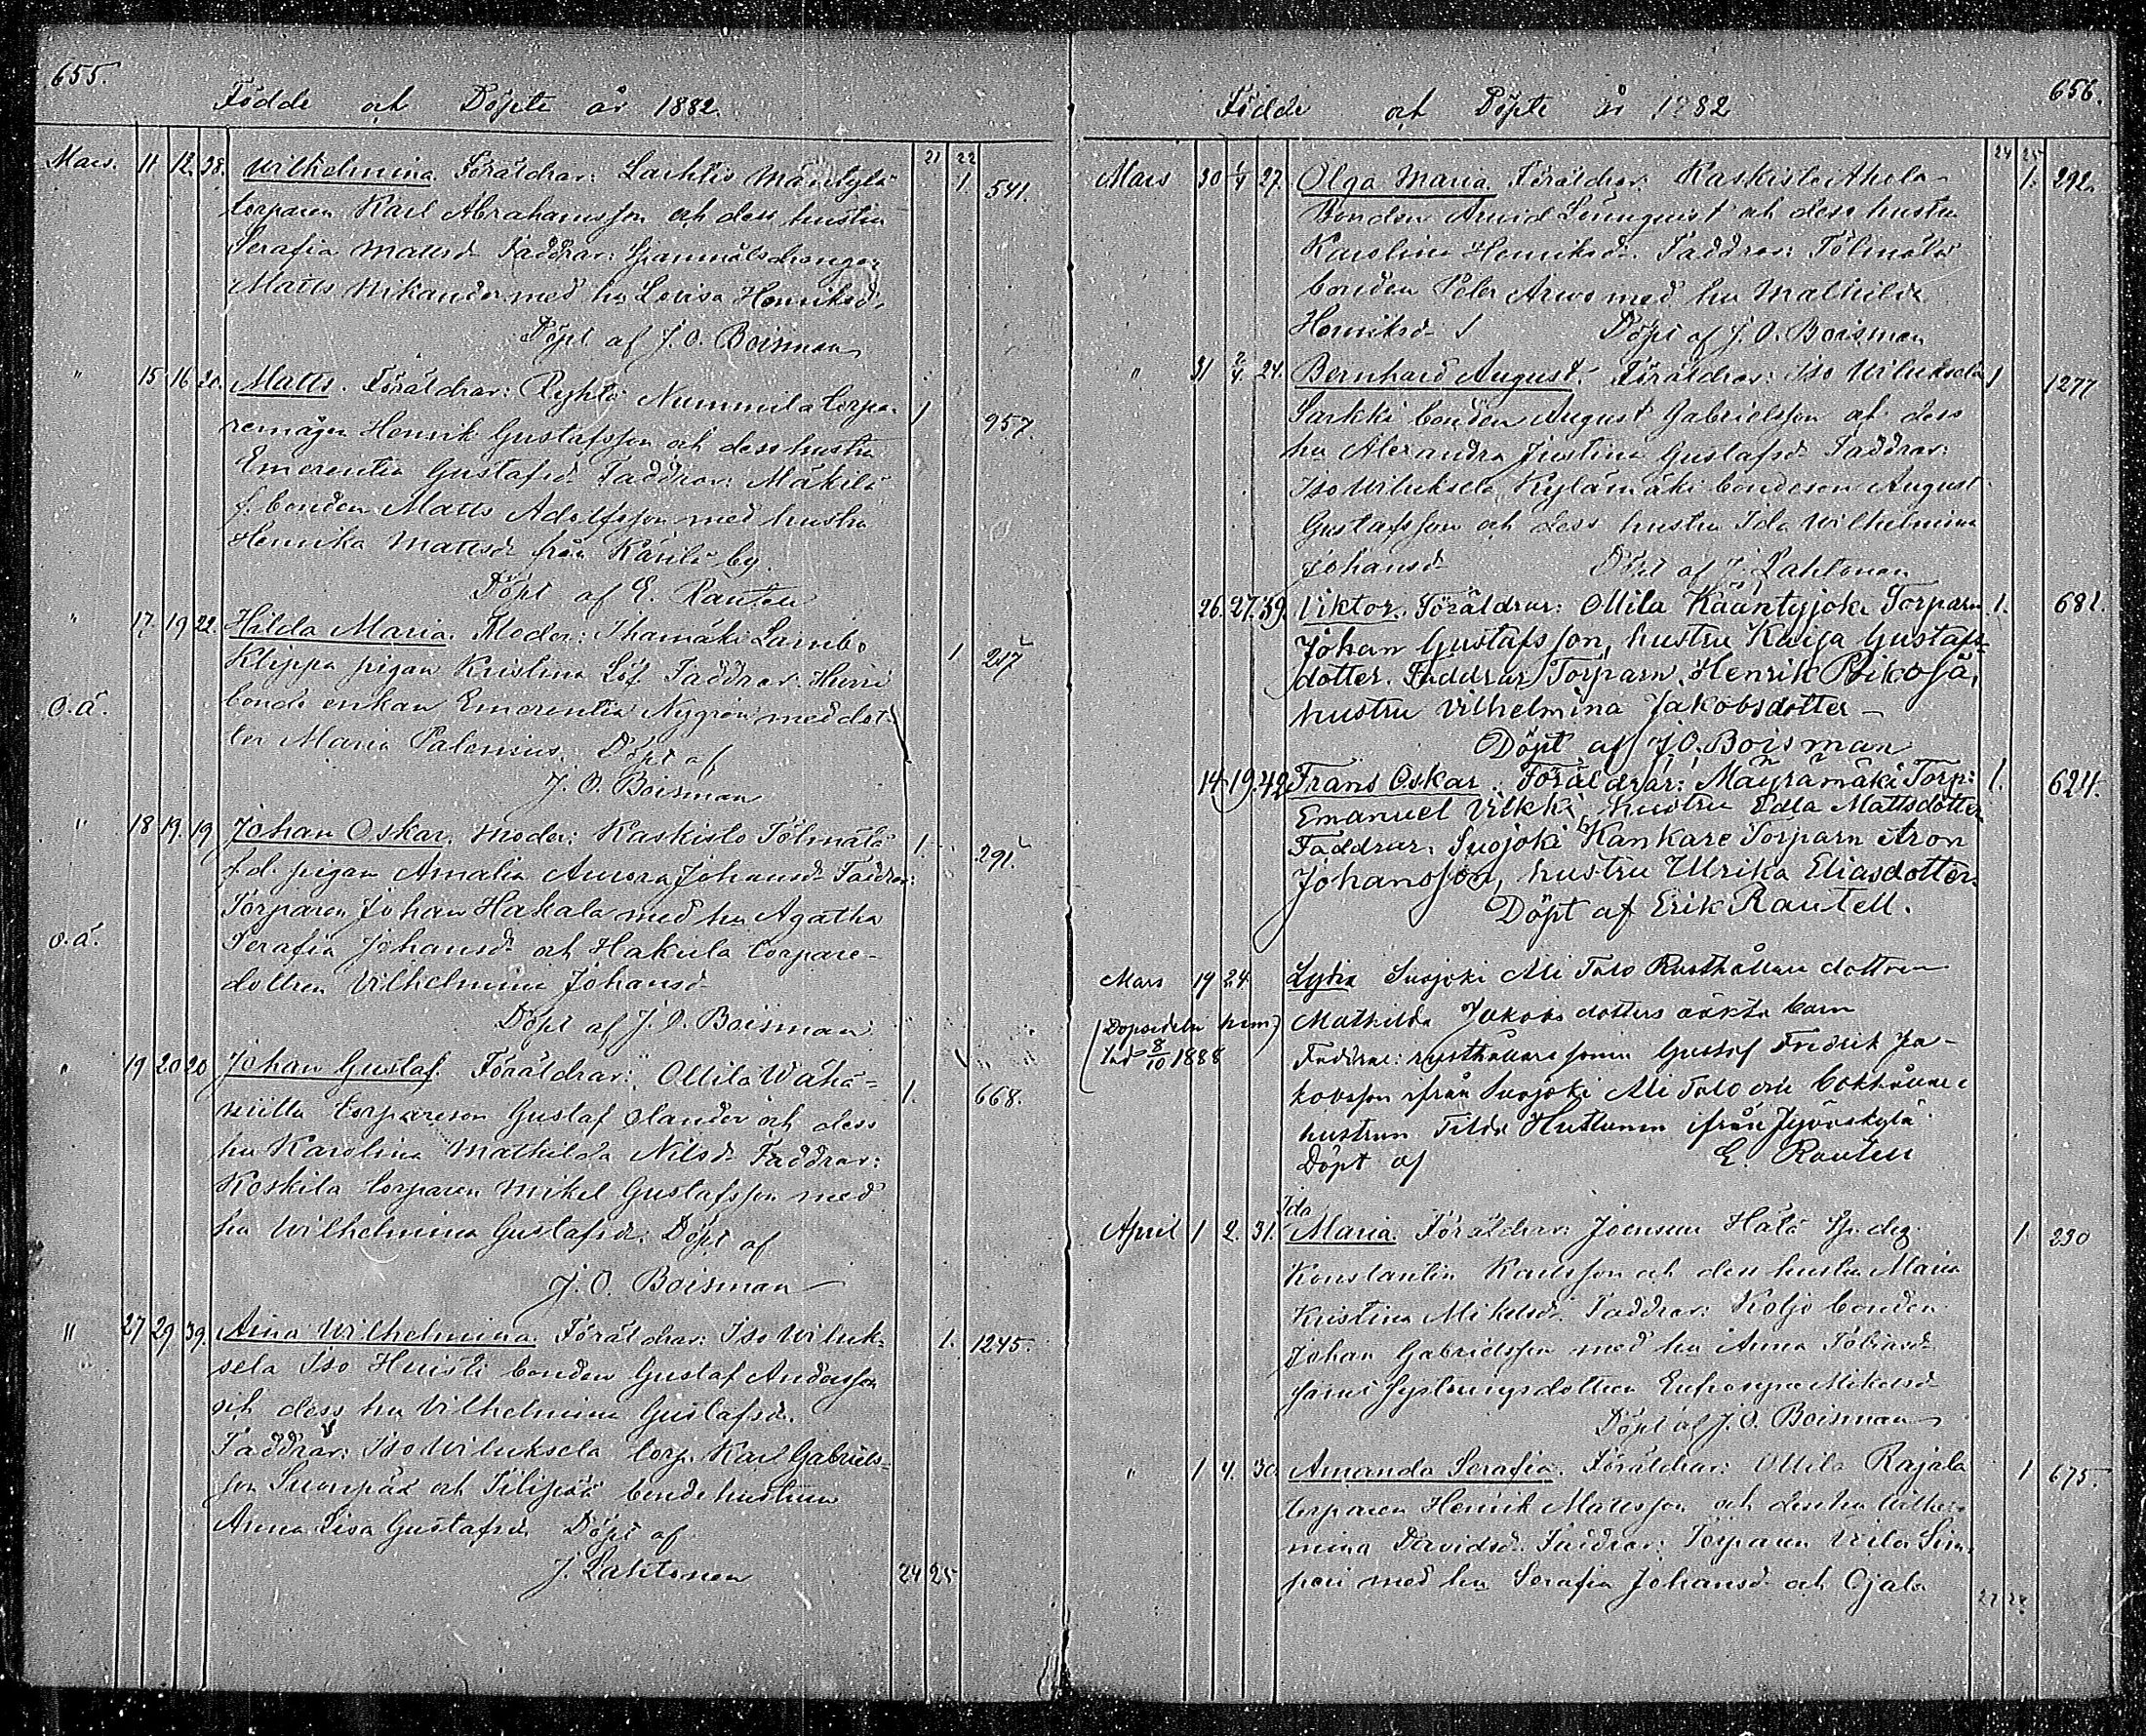 655.
Födde och Döpte år 1882.
21 22
Mars. 11 12. 38. Wilhelmina. Föräldrar: Laihtis Mäntylä 1. 541.
torparen Karl Abrahamsson och dess hustru
Serafia Mattsd. Faddrar:
Matts Nikander med hu Lovisa Henriksd.
Döpt af J. O. Boisman
" 15 16 20. Matts. Föräldrar: Ryhtä Nummila torpa- 1 957.
remågen Henrik Gustafsson och dess hustru
Emerentia Gustafsd. Faddrar: Mäkilä
f. bonden Matts Adolfsson med hustru
Henrika Mattsd. från Kärilä by.
Döpt af E. Rautell
" 17 19 22. Hilda Maria. Moder: Ihamäki Lambo 1 257
Klippa pigan Kristina Löf Faddrar. Hurri
o.ä. bonde enkan Emerentia Nygrén med dot-
ter Maria Palenius. Döpt af
J. O. Boisman
" 18 19. 19. Johan Oskar. Moder: Kaskisto Tölmälä 1. 291.
f.d. pigan Amalia Aurora Johansd. Faddrar:
Torparen Johan Hakala med hu Agatha
o.ä. Serafia Johansd. och Hakula torpare-
dottren Vilhelmina Johansd.
Döpt af J. O. Boisman
" 19 20 20 Johan Gustaf. Föräldrar: Ollila Wähä- 1. 668.
torpareson Gustaf Olander och dess
hu Karolina Mathilda Nilsd. Faddrar:
Koskila torparen Mikel Gustafsson med
hu Wilhelmina Gustafsd. Döpt af
J. O. Boisman
" 27 29 39. Aina Wilhelmina. Föräldrar: Iso Wiluk- 1. 1245.
sela Iso Huisti bonden Gustaf Andersson
och dess hu Vilhelmina Gustafsd.
Faddrar: Iso Wiluksela torp. Karl Gabriels-
son Suonpää och Filipää bonde hustrun
Anna Lisa Gustafsd. Döpt af
J. Lahtonen
24 25
656.
Födde och Döpte år 1882
24 25
Mars 30 1/4 27. Olga Maria. Föräldrar. Kaskisto Ahola 1. 292.
Bonden Arvid Lönnquist och dess hustru
Karolina Henriksd. Faddrar: Tölmälä
bonden Peter Arwo med hu Mathilda
Henriksd. Döpt af J. O. Boisman
" 31 2/4 24. Bernhard August. Föräldrar: Iso Wiluksela 1 1277
Sarkki bonden August Gabrielsson och dess
hu Alexandra Justina Gustafsd. Faddrar:
Iso Wiluksela Kylämäki bondeson August
Gustafsson och dess hustru Ida Wilhelmina
Johansd. Döpt af J. Lahtonen
26. 27. 39. Viktor. Föräldrar: Ollila Kääntyjoki Torparn 1. 681.
Johan Gustafsson, hustru Kaisa Gustafs-
dotter. Faddrar Torparn Henrik Pikoja,
hustru Vilhelmina Jakobsdotter –
Döpt af J. O. Boisman
14 19. 42 Frans Oskar. Föräldrar: Mäyrämäki Torp: 1. 624.
Emanuel Vilkki, hustru Edla Mattsdotter
Faddrar. Suojoki Kankare Torparn Aron
Johansson, hustru Ulrika Eliasdotter.
Döpt af Erik Rautell.
Mars 19 24 Lydia Suojoki Ali Talo Rusthållare dottren
(Dopsedeln Mathilda Jakobs dotters oäkta barn
8/10 1888 Faddrar: rusthållare sonen Gustaf Fredrik Ja-
kobsson ifrån Suojoki Ali Talo och
hustrun Tilda Huttunen ifrån Jyväskylä
Döpt af E. Rautell
Ida
April 1 2. 31. Maria. Föräldrar: Joensuu Hälä 1. 230
Konstantin Karlsson och dess hustru Maria
Kristina Mikelsd. Faddrar: Koljo bonden
Johan Gabrielsson med hu Anna Tobiasd.
samt Systringsdottren Eufrosyne Mikelsd.
Döpt af J. O. Boisman
" 1 4. 30. Amanda Serafia. Föräldrar: Ollila Rajala 1 675.
torparen Henrik Mattsson och dess hu Wilhel-
mina Davidsd. Faddrar: Torparen Sim-
peri med hu Serafia Johansd. och Ojala
27 28